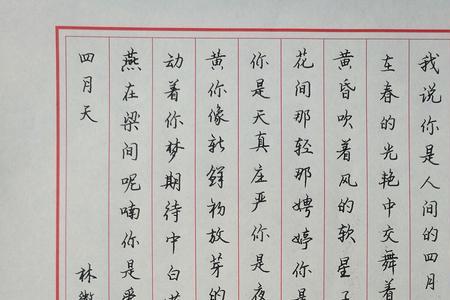 我说你是人间的四月
在春的光艳中交舞着
黄昏吹着风的软星子
花间那轻那娉婷你是
你是天真庄严你是夜
黄你像新鲜初放芽的
动着你梦期待中白
燕在梁间呢喃你是爱
四月天 林徽